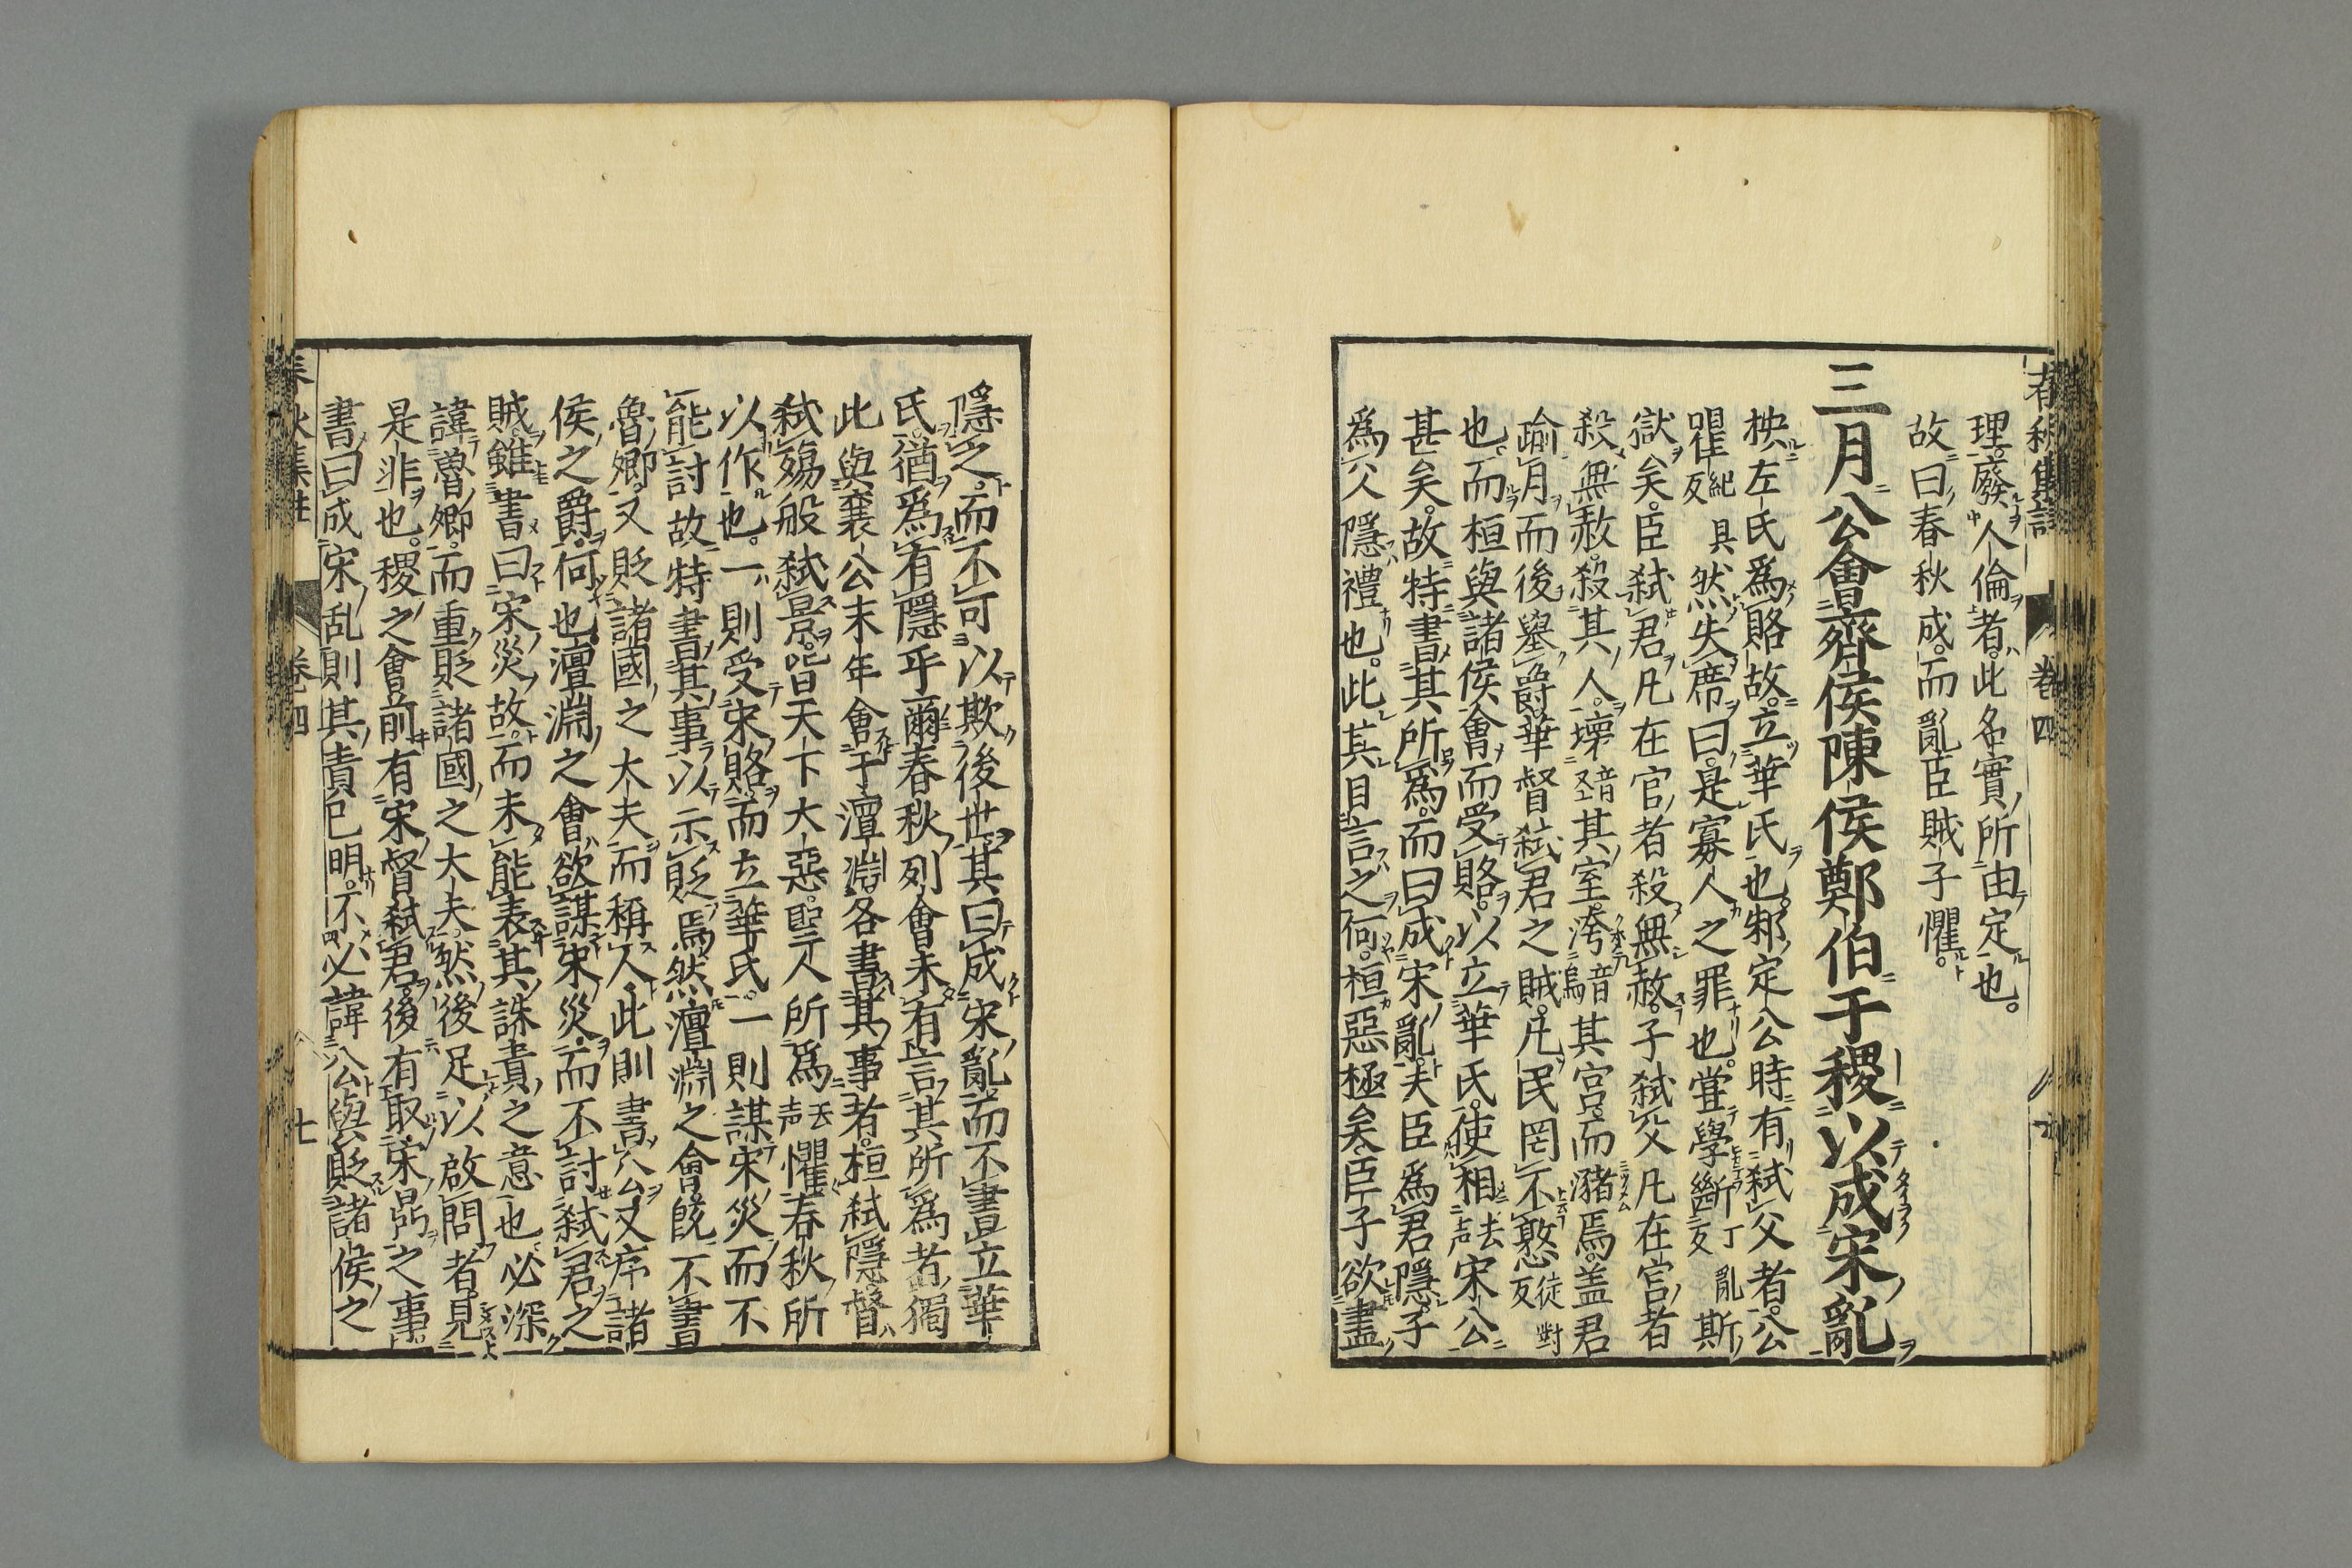 春秋集註 卷四
理廢人倫者此名實所由定也
故曰春秋成而亂臣賊子懼
三月公會齊侯陳侯鄭伯于稷以成宋亂
按左氏爲賂故立華氏也邾定公時有弑父者公
瞿紀具反然失席曰是寡人之罪也甞學斷丁亂反斯
獄矣臣弑君凡在官者殺無赦子弑父凡在宮者
殺無赦殺其人壊音怪其室洿音烏其宮而瀦焉盖君
踰月而後舉爵華督弑君之賊凡民罔不憝徒對反
也而桓與諸侯會而受賂以立華氏使相去声宋公
甚矣故特書其所爲而曰成宋亂夫臣爲君隱子
爲父隱禮也此其目言之何桓惡極矣臣子欲盡
隱之而不可以欺後世其曰成宋亂而不書立華
氏猶爲有隱乎爾春秋列會未有言其所爲者獨
此與襄公末年會于澶淵各書其事者桓弑隱督
弑殤般弑景皆天下大惡聖人所爲去声懼春秋所
以作也一則受宋賂而立華氏一則謀宋災而不
能討故特書其事以示貶焉然澶淵之會旣不書
魯卿又貶諸國之大夫而稱人此則書公又序諸
侯之爵何也澶淵之會欲謀宋災而不討弑君之
賊雖書曰宋災故而未能表其誅責之意也必深
諱魯卿而重貶諸國之大夫然後足以啟問者見
是非也稷之會前有宋督弑君後有取宋鼎之事
書曰成宋乱則其責已明不必諱公與貶諸侯之
春秋集註 卷四 七